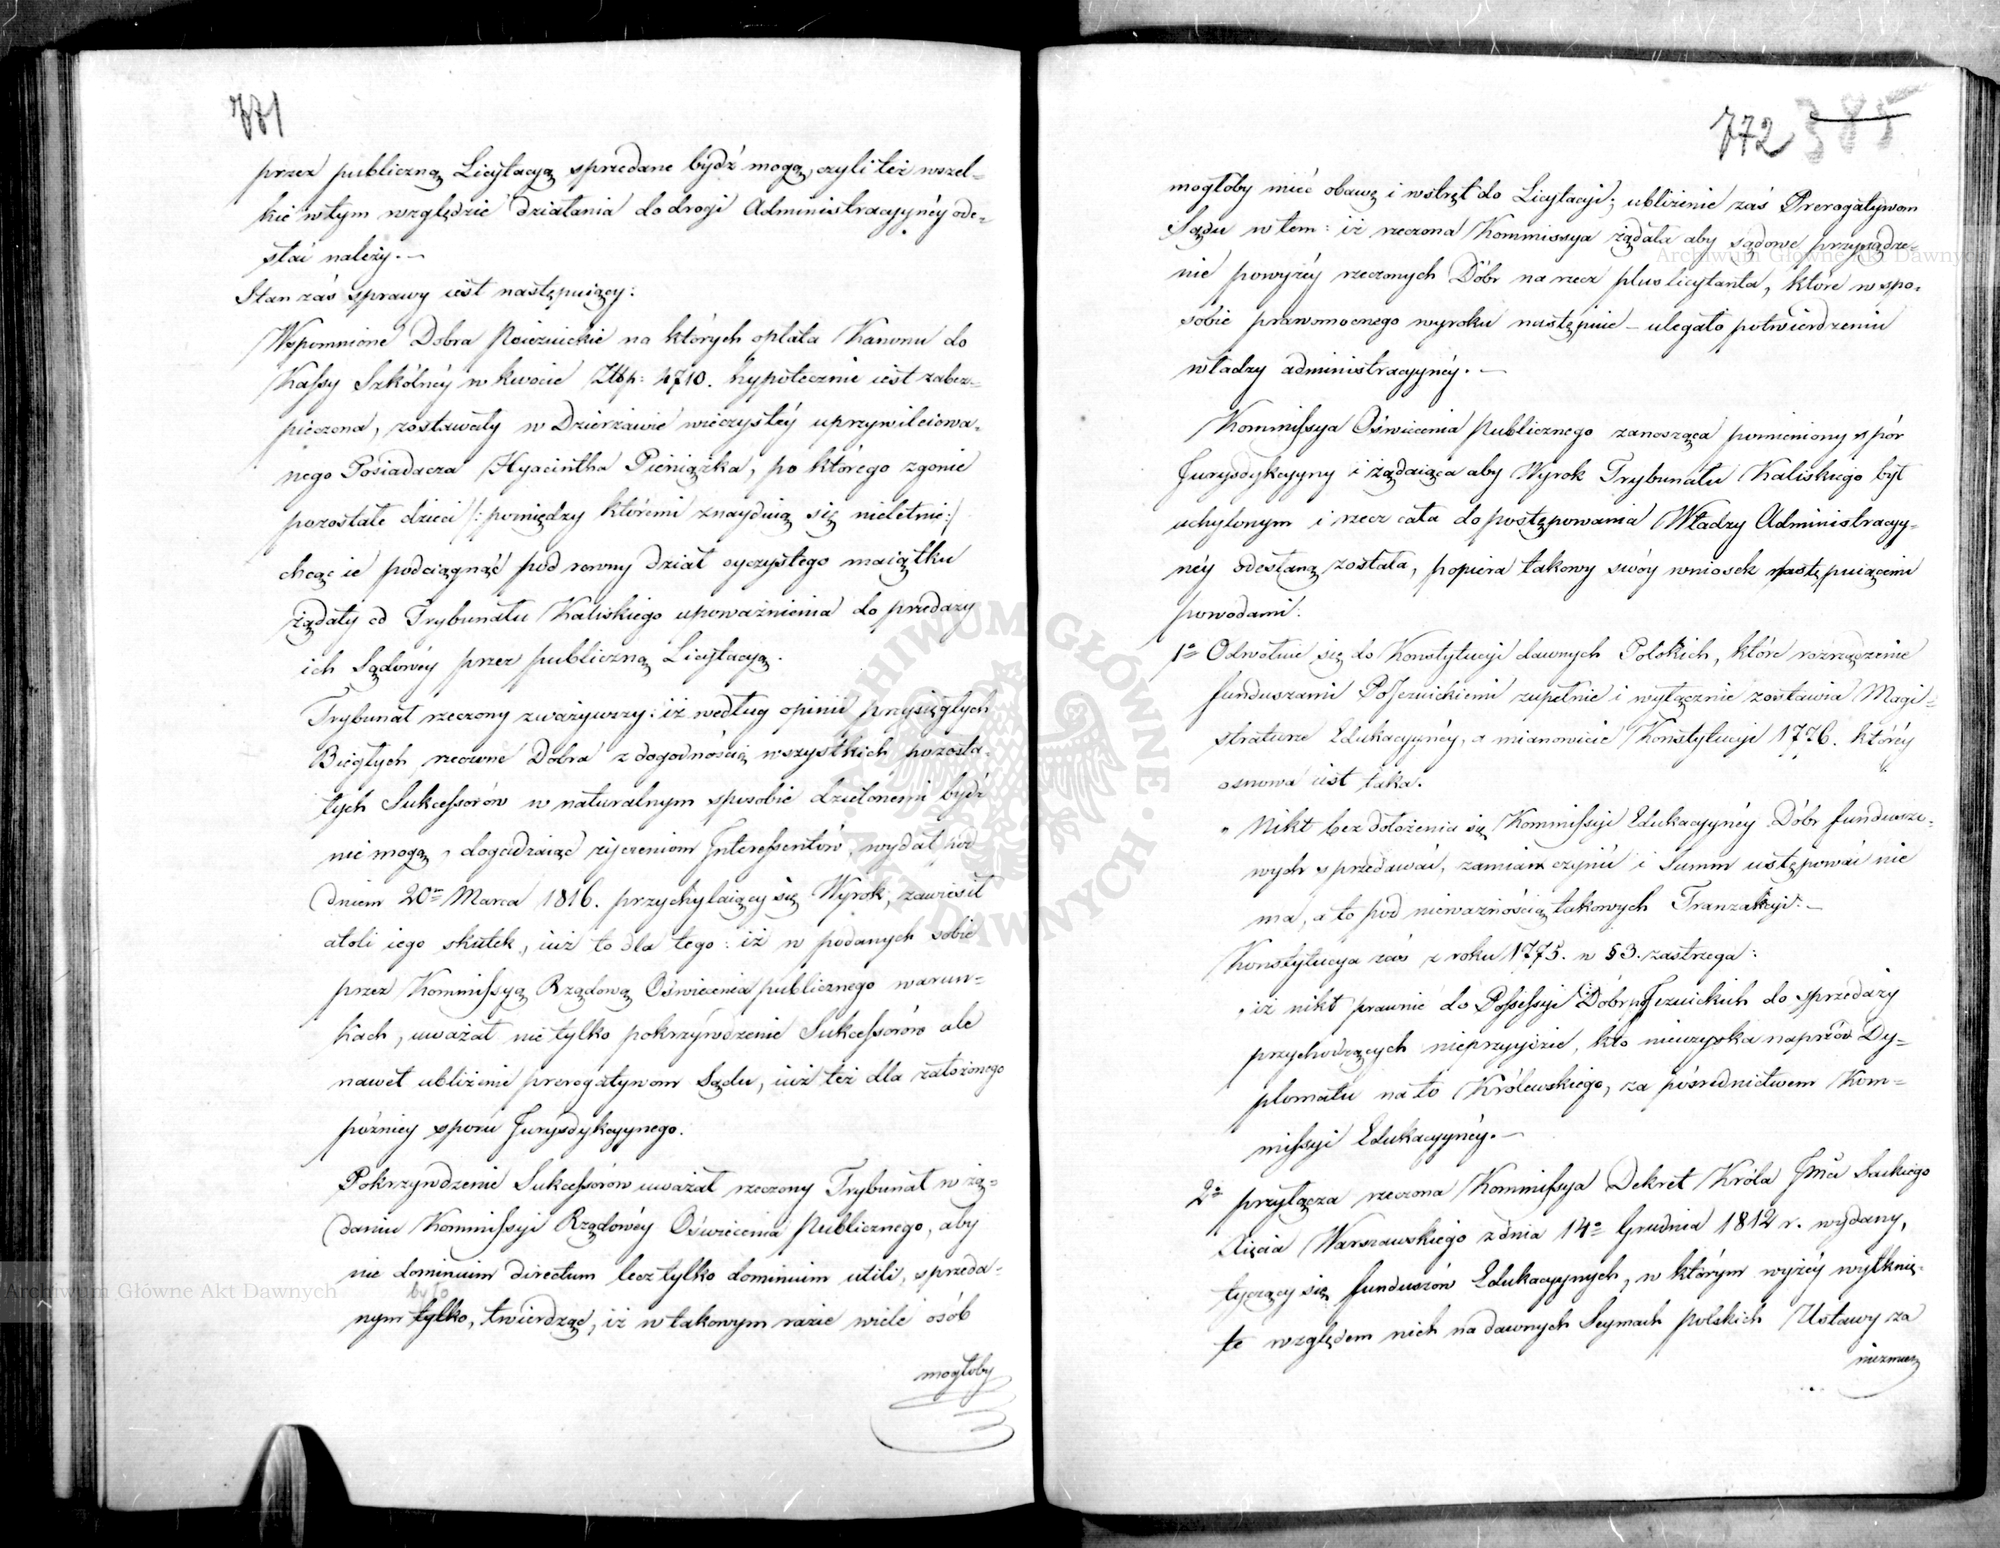 771
przez publiczną Licytacyą sprzedane bydź mogą, czyli też wszel-
kie w tym względzie działania do drogi Administracyynéy ode-
słać należy. —
Stan zaś sprawy iest następuiący:
Wspomnione Dobra na których opłata Kanonu do
Kassy Szkólnéy w kwocie Złłp: 4710. hypotecznie iest zabez-
pieczona, zostawały w Dzierżawie wieczystéy uprzywileiowa-
nego Posiadacza Hyacintha Pieniążka, po którego zgonie
pozostałe dzieci /: pomiędzy któremi znayduią się nieletnie:/
chcąc ie podciągnąć pod rowny dział oyczystego maiątku
żądały od Trybunału Kaliskiego upoważnienia do przedaży
ich Sądowéy przez publiczną Licytacyą.
Trybunał rzeczony zważywszy: iż według opinii przysięgłych
Biegłych rzeczone Dobra z dogodnością wszystkich pozosta-
łych Sukcessorów w naturalnym sposobie dzielonemi bydź
nie mogą, dogadzaiąc życzeniom Interessentów, wydał pod
dniem 20m Marca 1816. przychylaiący się Wyrok; zawiesił
atoli iego skutek, iuż to dla tego: iż w podanych sobie
przez Kommissyą Rządową Oświecenia publicznego warun-
kach, uważał nie tylko pokrzywdzenie Sukcessorów ale
nawet ubliżenie prerogatywom Sądu, iuż też dla założonego
późniey sporu Jurysdykcyynego.
Pokrzywdzenie Sukcessorów uważał rzeczony Trybunał w żą-
daniu Kommissyi Rządowéy Oświecenia Publicznego, aby
nie dominium directum lecz tylko dominium utile, sprzeda-
było
nym tylko, twierdząc, iż w takowym razie wiele osób
mogłoby
772 385
mogłoby mieć obawę i wstręt do Licytacyi; ubliżenie zaś Prerogatywom
Sądu w tem: iż rzeczona Kommissya żądała aby sądowe przysądze-
nie powyżéy rzeczonych Dóbr na rzecz pluslicytanta, które w spo-
sobie prawomocnego wyroku następuie — ulegało potwierdzeniu
władzy administracyynéy. —
Kommissya Oświecenia Publicznego zanosząca pomieniony spór
Jurysdykcyyny i żądaiąca aby Wyrok Trybunału Kaliskiego był
uchylonym i rzecz cała do postępowania Władzy Administracyy-
néy odesłaną została, popiera takowy swóy wniosek następuiącemi
powodami:
1o Odwołuie się do Konstytucyi dawnych Polskich, które rozrządzenie
funduszami PoJezuickiemi zupełnie i wyłącznie zostawia Magi-
straturze Edukacyynéy, a mianowicie Konstytucyi 1776. któréy
osnowa iest taka.
„ Nikt bez dołożenia się Kommissyi Edukacyynéy Dóbr fundusze-
wych sprzedawać, zamian czynić i Summ ustępować nie
ma, a to pod nieważnością takowych Tranzakcyi. —
Konstytucya zaś z roku 1775. w § 3. zastrzega:
„ iż nikt prawnie do Possessyi Dóbr poJezuickich do sprzedaży
przychodzących nieprzyydzie, kto nieuzyska naprzód Dy-
plomatu na to Królewskiego, za pośrednictwem Kom-
missyi Edukacyynéy. —
2o przyłącza rzeczona Kommissya Dekret Króla Jmci Saskiego
Xięcia Warszawskiego z dnia 14o Grudnia 1812 r. wydany,
tyczący się funduszów Edukacyynych, w którym wyżéy wytknię-
te względem nich na dawnych Seymach polskich Ustawy za
niezmien
Archiwum Główne Akt Dawnych
Archiwum Główne Akt Dawnych
ARCHIWUM GŁÓWNE AKT DAWNYCH